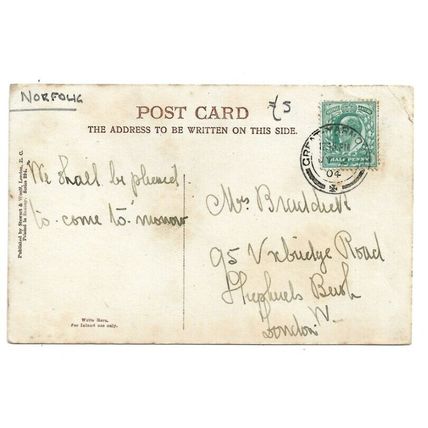 NORFOLK
£5
POST CARD
THE ADDRESS TO BE WRITTEN ON THIS SIDE.
GREAT YARMO
HALF PENNY
04
We shall be pleased
to come to-morrow
Mrs
95 Uxbridge Road
Shepherds Bush
London W.
Published by Stewart & Woolf, London, E.C.
Printed in
Write Here.
For Inland use only.